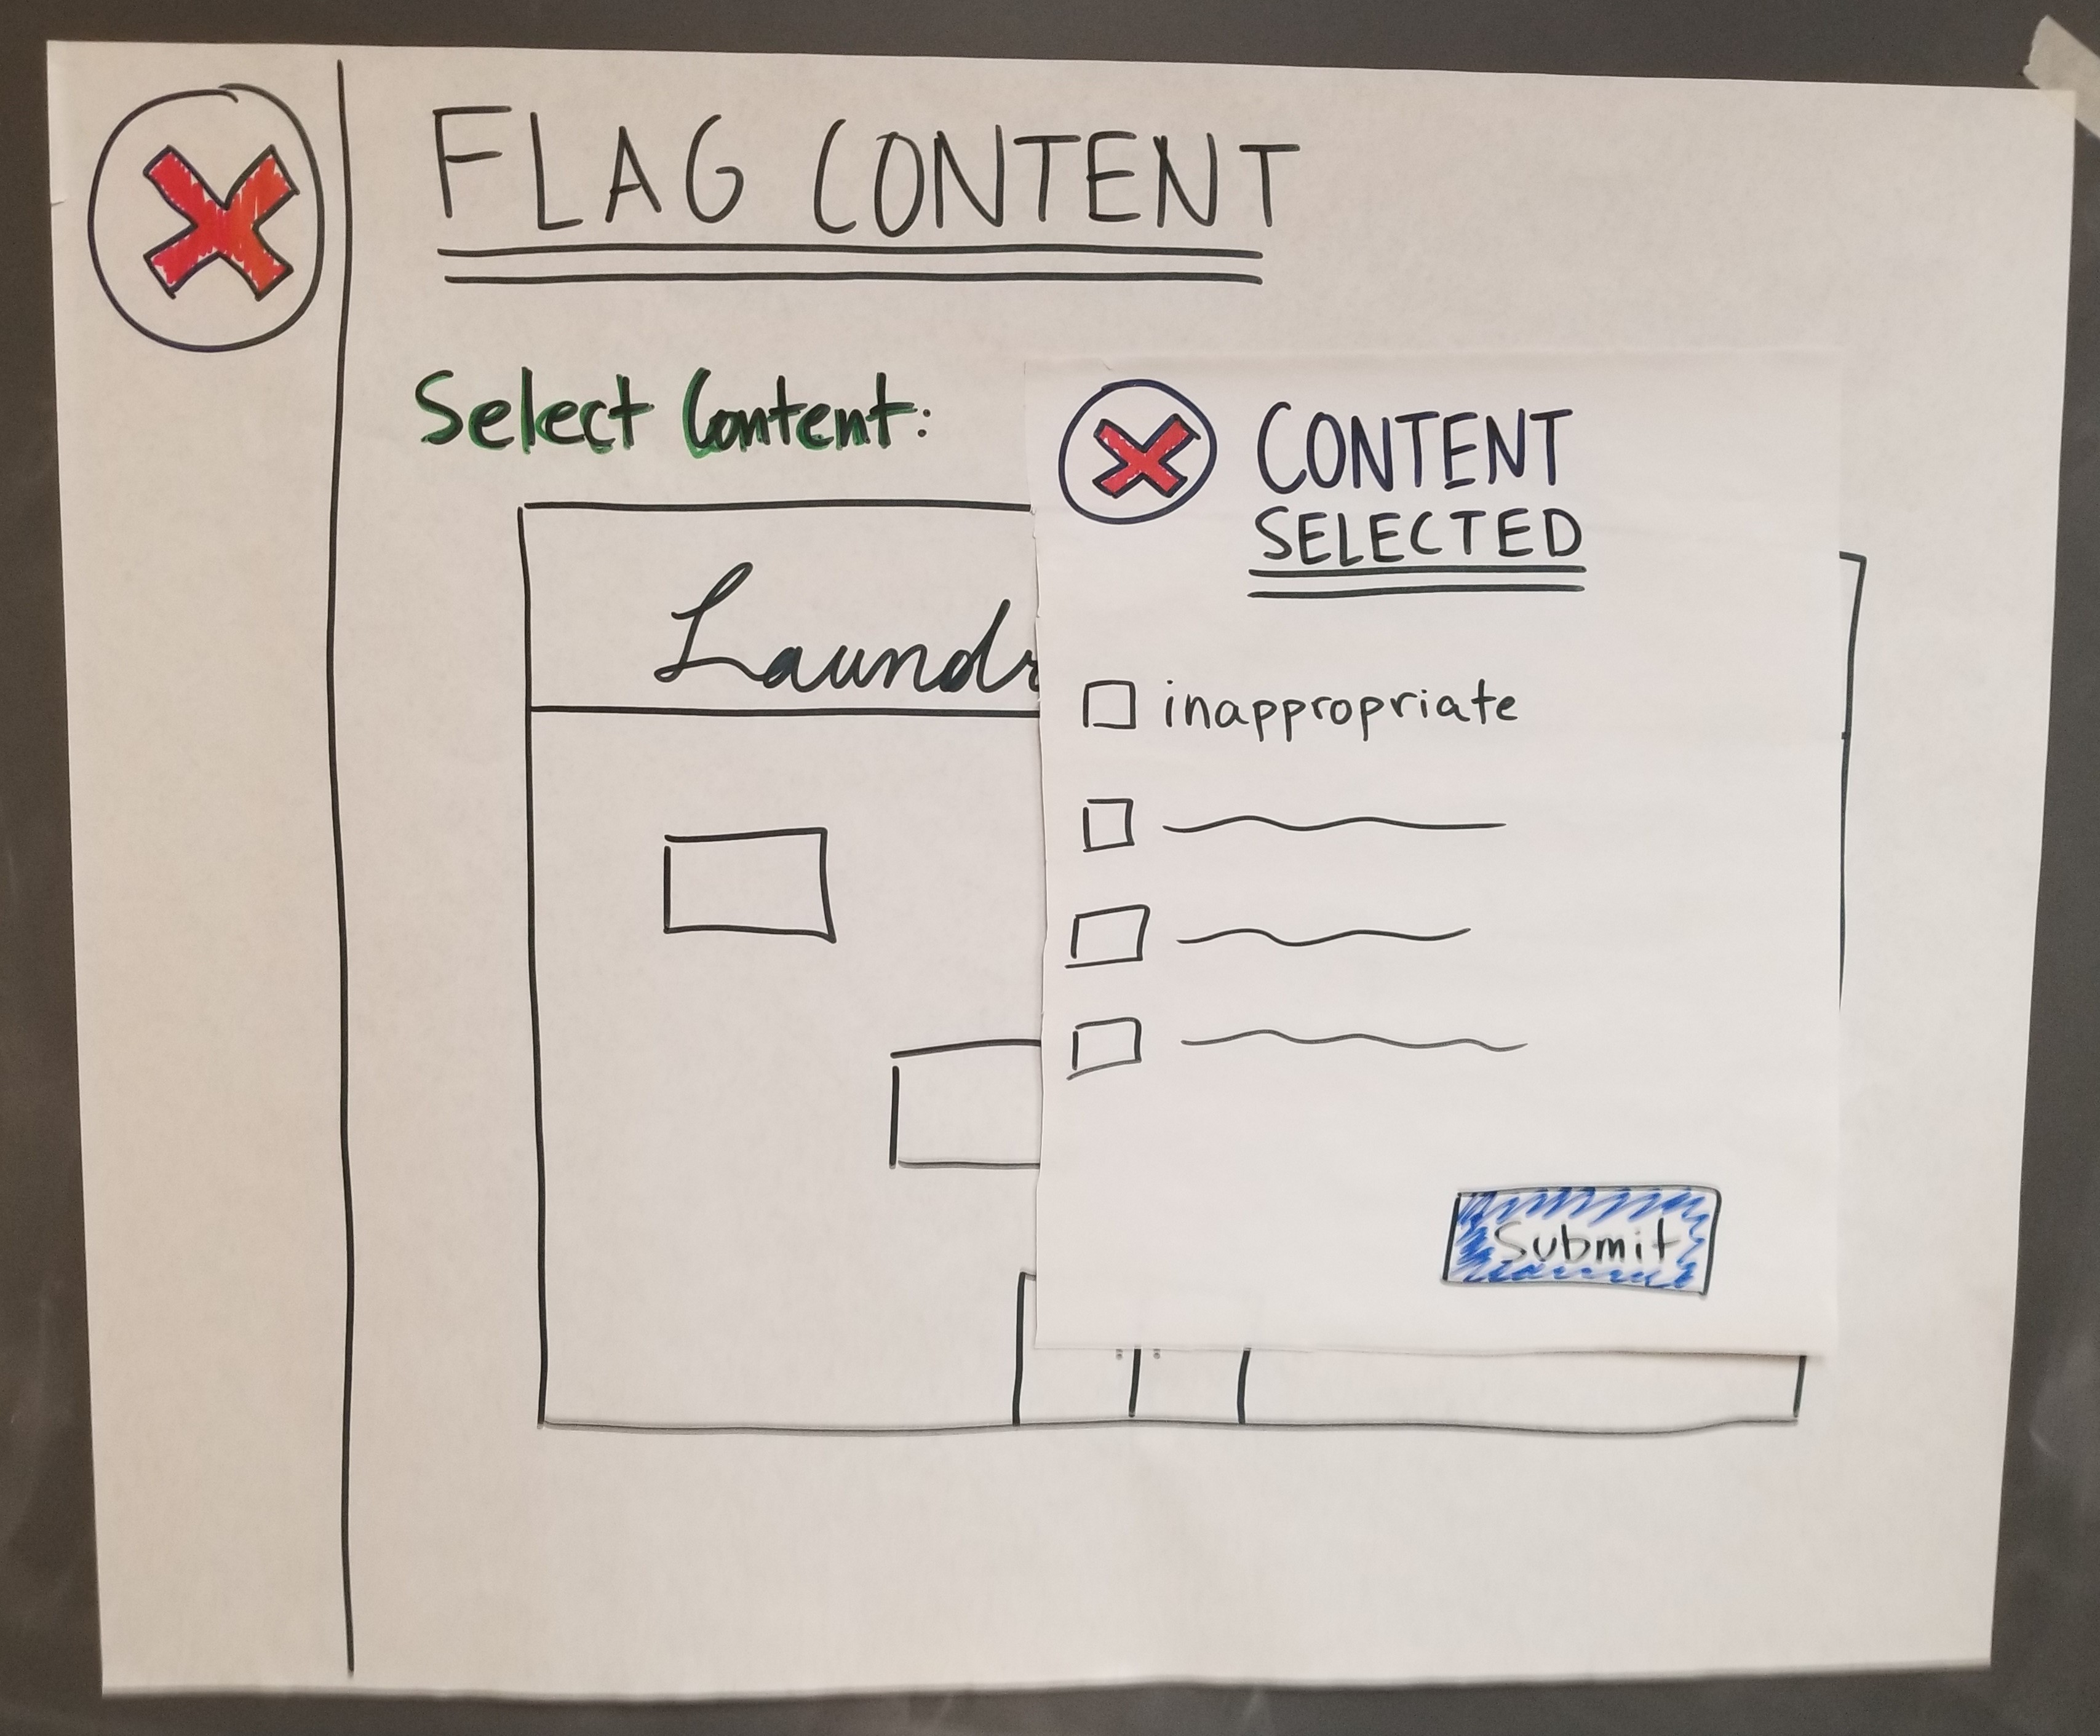 FLAG CONTENT
Select Content:
CONTENT
SELECTED
Laundr
inappropriate
Submit